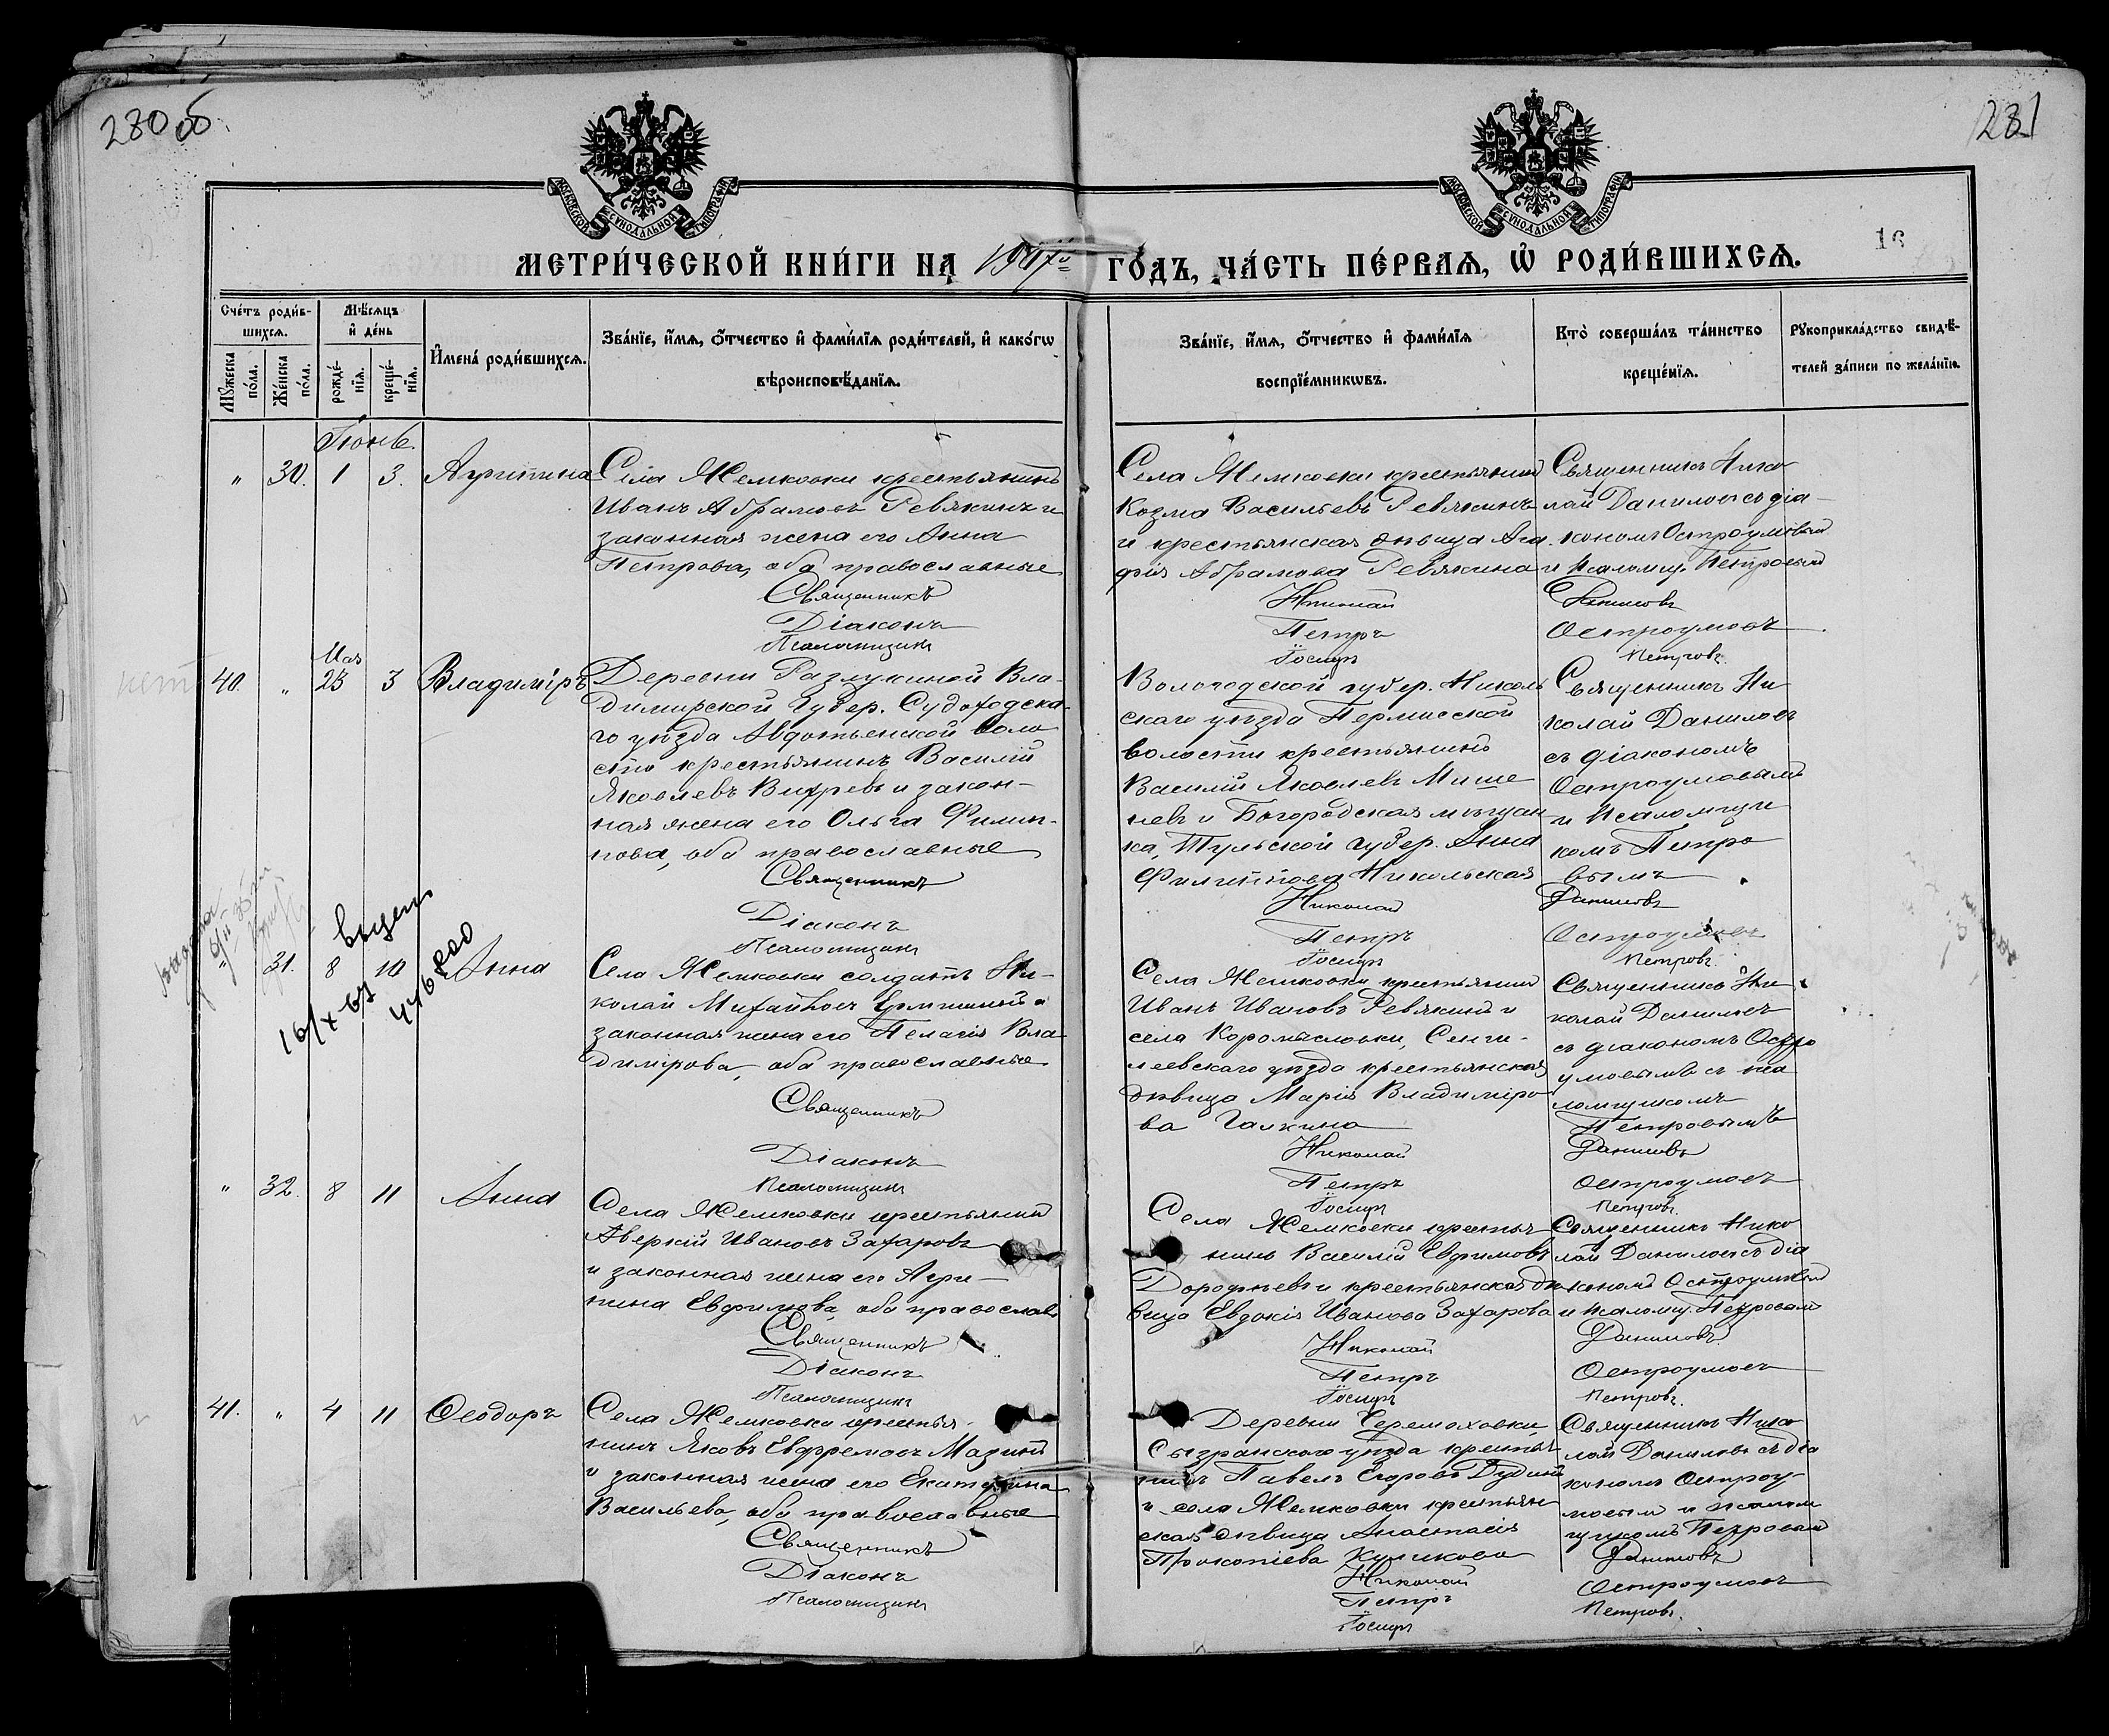 280об.
281
МОСКОВСКОЙ СѴНОДАЛЬНОЙ ТИПОГРАФІИ
МОСКОВСКОЙ СѴНОДАЛЬНОЙ ТИПОГРАФІИ
16
МЕТРИ́ЧЕСКОЙ КНИ́ГИ НА
ГО́ДЪ, ЧА́СТЬ ПЕ́РВАѦ, Ѡ҆ РОДИ́ВШИХСѦ.
Сче́тъ роди́в-
шихсѧ.
Мꙋ́жеска по́ла.
Же́нска по́ла.
Мѣ́сѧцъ
и҆ де́нь
рожде́-
нїѧ.
креще́-
нїѧ.
И҆мена̀ роди́вшихсѧ.
Зва́нїе, и҆́мѧ, ѻ҆́тчество и҆ фами́лїѧ роди́телей, и҆ како́гѡ
вѣроисповѣ́данїѧ.
Зва́нїе, и҆́мѧ, ѻ҆́тчество и҆ фами́лїѧ
воспрїе́мникѡвъ.
Кто̀ соверша́лъ та́инство
креще́нїѧ.
Рꙋкоприкла́дство свидѣ́-
телей за́писи по жела́нїю.
Іюнь.
" 30. 1 3. Агрипина
Села Жемковки крестьянинъ
Иванъ Абрамовъ Ревякинъ и
законная жена его Анна
Петрова, оба православные
Священникъ
Діаконъ
Псаломщикъ
Села Жемковки крестьянинъ
Козма Васильевъ Ревякинъ
и крестьянская дѣвица Ага
фія Абрамова Ревякина
Николай
Петръ
Іосифъ
Священникъ Нико
лай Даниловъ съ діа-
кономъ Остроумовымъ
и псаломщ. Петровымъ
Даниловъ
Остроумовъ
Петровъ.
нет
Мая
40. " 25 3 Владиміръ
Деревни Разлукиной Вла-
димирской губер. Судогодска-
го уѣзда Авдотьенской воло
сти крестьянинъ Василій
Яковлевъ Вихревъ и закон-
ная жена его Ольга Филип-
пова, оба православные
Священникъ
Діаконъ
Псаломщикъ
Вологодской губер. Николь
скаго уѣзда
волости крестьянинъ
Василій Яковлевъ Мише
невъ и Богородская мѣщан
ка, Тульской губер. Анна
Филиппова Никольская
Николай
Петръ
Іосифъ
Священникъ Ни
колай Даниловъ
съ діакономъ
Остроумовымъ
и псаломщи
комъ Петро
вымъ
Даниловъ
Остроумовъ
Петровъ.
16/X 67
" 31. 8 10 Анна
Села Жемковки солдатъ Ни-
колай Михайловъ и
законная жена его Пелагія Вла
димірова, оба православные
Священникъ
Діаконъ
Псаломщикъ
Села Жемковки крестьянинъ
Иванъ Ивановъ Ревякинъ и
села Коромысловки, Сенги-
леевскаго уѣзда крестьянская
дѣвица Марія Владиміро
ва Галкина
Николай
Петръ
Іосифъ
Священникъ Ни
колай Даниловъ
съ діакономъ Остро
умовымъ и пса
ломщикомъ
Петровымъ
Даниловъ
Остроумовъ
Петровъ.
" 32. 8 11 Анна
Села Жемковки крестьянинъ
Аверкій Ивановъ Захаровъ
и законная жена его Агри-
пина Евфимова, оба православ
Священникъ
Діаконъ
Псаломщикъ
Села Жемковки крестья
нинъ Василій Евфимовъ
Дорофеевъ и крестьянская дѣ
вица Евдокія Иванова Захарова
Николай
Петръ
Іосифъ
Священникъ Нико
лай Даниловъ съ діа
кономъ Остроумовымъ
и псаломщ. Петровымъ
Даниловъ
Остроумовъ
Петровъ.
41. " 4 11 Ѳеодоръ
Села Жемковки крестья-
нинъ Яковъ Евфремовъ Мазинъ
и законная жена его Екатерина
Васильева, оба православные
Священникъ
Діаконъ
Псаломщикъ
Деревни Черемоховки,
Сызранскаго уѣзда крестья
нинъ Павелъ Егоровъ Дудинъ
и села Жемковки крестьян
ская дѣвица Анастасія
Прокопіева Куликова
Николай
Петръ
Іосифъ
Священникъ Нико
лай Даниловъ съ діа
кономъ Остроу-
мовымъ и псалом
щикомъ Петровымъ
Даниловъ
Остроумовъ
Петровъ.